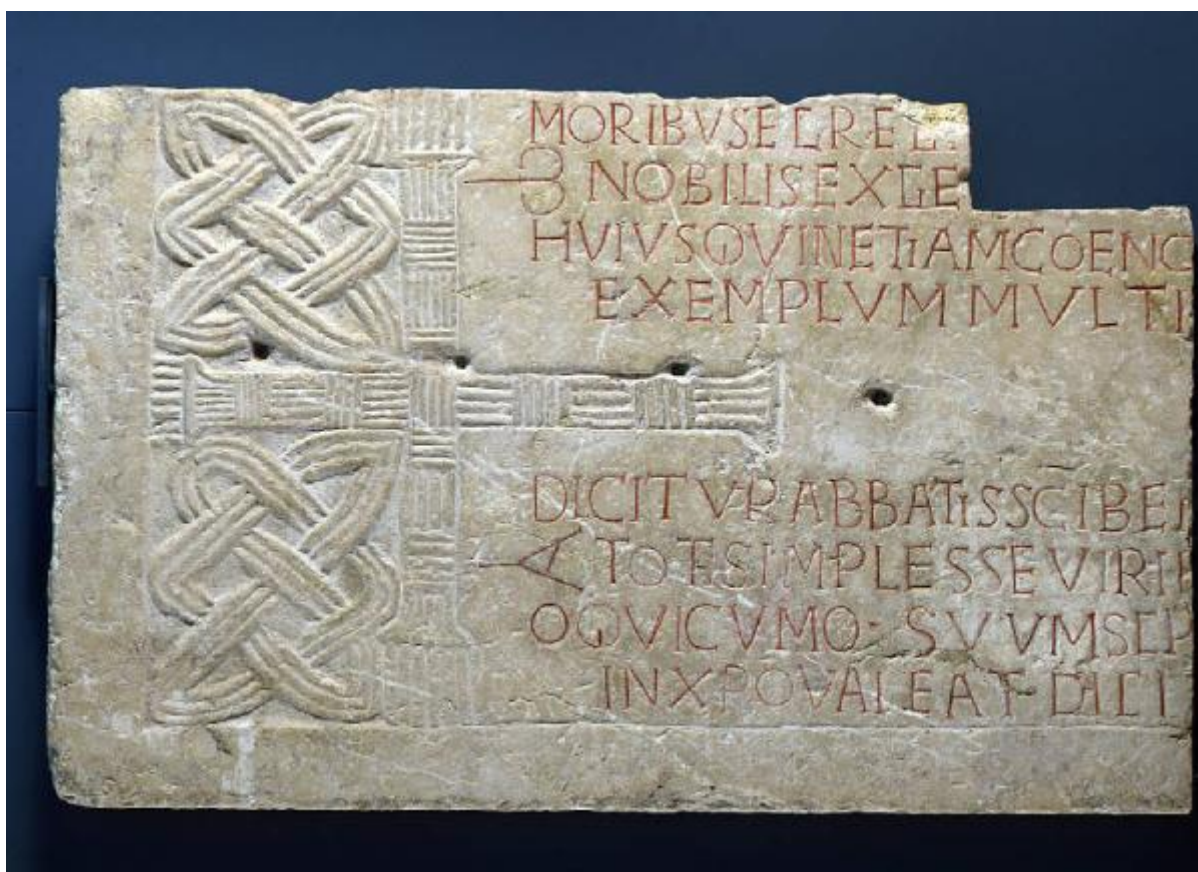 MORIBVSEGREGI
ω NOBILISEXGE
HVIVSQVINETIAMCOENO
EXEMPLVMMVLTI
DICITVRABBATISSCIBEN
A TOTSIMPLESSEVIRI
OQVICVMQ· SVVMSEP
INXPOVALEATDICI